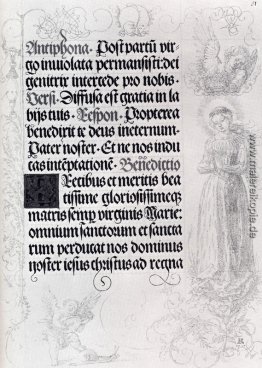 51
Antiphona. Post partũ vir-
go inuiolata permansisti: dei
genitrix intercede pro nobis.
Versi. Diffusa est gratia in la
bijs tuis. Respon. Propterea
benedixit te deus ineternum.
Pater noster. Et ne nos indu
cas intẽptationẽ. Benedictio
Precibus et meritis bea
tissime gloriosissimeq
matris semp virginis Marie:
omnium sanctorum et sancta
rum perducat nos dominus
noster iesus christus ad regna
www.malereikopie.de